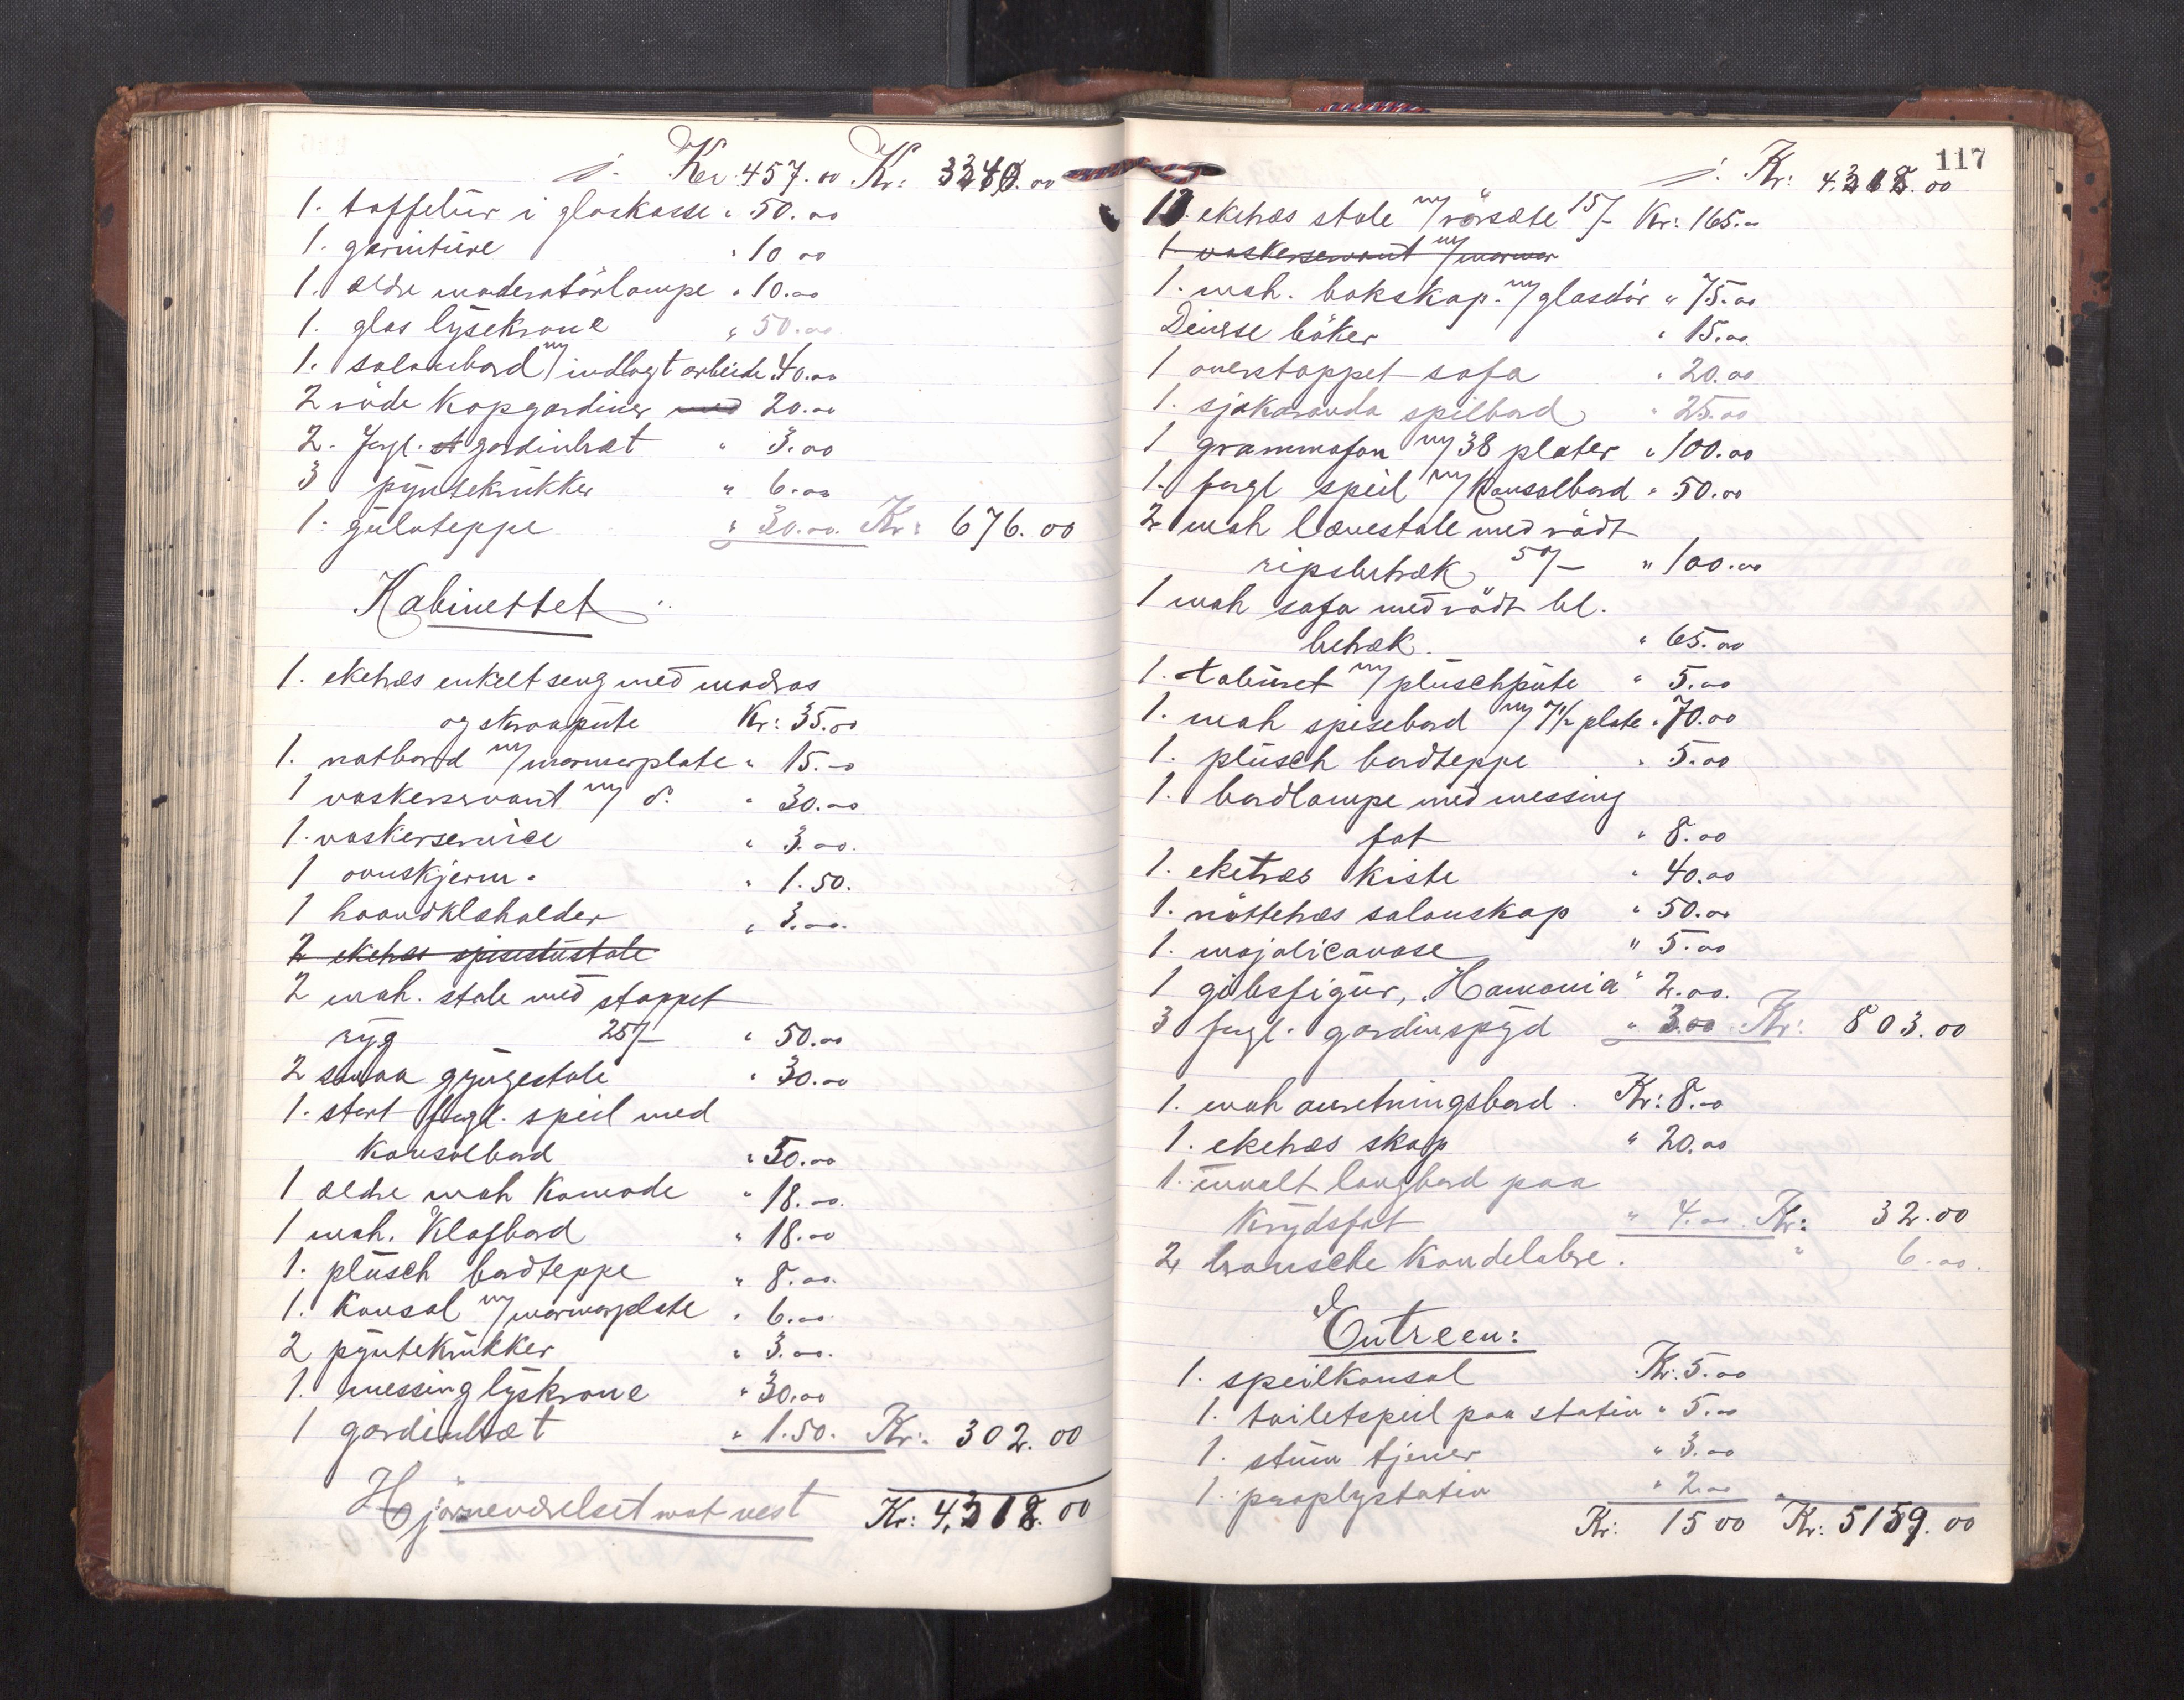 Kr. 457.00 Kr: 3340.00
1. taffelür i glaskasse " 50.00
1. garnitüre " 10 00
1. ældre moderatörlampe " 10.00
1. glas lÿsekrone " 50.00
1. salonbord m/ indlagt arbeide " 40.00
2 röde kapgardiner med 20.00
2. forgl. gardinbræt " 3.00
3 pÿntekrükker " 6.00
1. gülvteppe " 30.00. Kr: 676.00
Kabinettet
1. eketræs enkelt seng med madras
og skraapüte Kr: 35.00
1. natbord m/ marmorplate " 15.00
1 vaskerservant m/ d. " 30.00
1. vaskerservice " 3.00.
1 ovnskjerm. " 1.50.
1 haandklæholder " 3.00.
2 eketræs spisestüstole
2 mah. stole med stoppet
rÿg 25/- " 50.00
2 smaa gÿngestole " 30.00
1. stort forgl. speil med
konsolbord " 50.00
1 ældre mah komode " 18.00.
1 mah. klafbord " 18.00
1. plüsch bordteppe " 8.00.
1. konsol m/ marmorplate " 6.00
2 pÿntekrükker " 3.00.
1. messing lÿskrone " 30.00
1 gardinbræt " 1.50. Kr: 302.00
Hjörneværelset mot vest Kr: 4,318.00
117
Kr: 4.318.00
11. eketræs stole m/ rörsæte 15/- Kr: 165.00
1 vaskerservant m/ marmor
1. mah. bokskap. m/ glasdör " 75.00
Diverse böker " 15.00.
1 overstoppet sofa " 20.00
1. sjakaranda spilbord " 25.00
1 grammofon m/ 38 plater " 100.00
1. forgl speil m/ konsolbord " 50.00
2 mah lænestole med rödt
ripsbetræk 50/- " 100.00
1 mah sofa med rödt bl.
betræk. " 65.00
1. taburet m/ plüschpüte " 5.00
1. mah spisebord m/ 7 1/2 plate " 70.00
1. plüsch bordteppe " 5.00
1. bordlampe med messing
fat " 8.00
1. eketræs kiste " 40.00
1. nöttetræs salonskap " 50.00
1. majolicavase " 5.00
1 gibsfigür, "Hamonia" 2.00.
3 forgl. gardinspÿd " 3.00 Kr: 803.00
1. mah anretningsbord. Kr: 8.00
1. eketræs skap " 20.00
1. umalt langbord paa
krÿdsfot " 4.00. Kr: 32.00
2 bronsche kandelabre. " 6.00.
Entreen:
1. speilkonsol Kr: 5.00
1. toiletspeil paa stativ " 5.00
1. stüm tjener " 3.00
1. paraplystativ " 2.00
Kr: 15 00 Kr: 5159.00